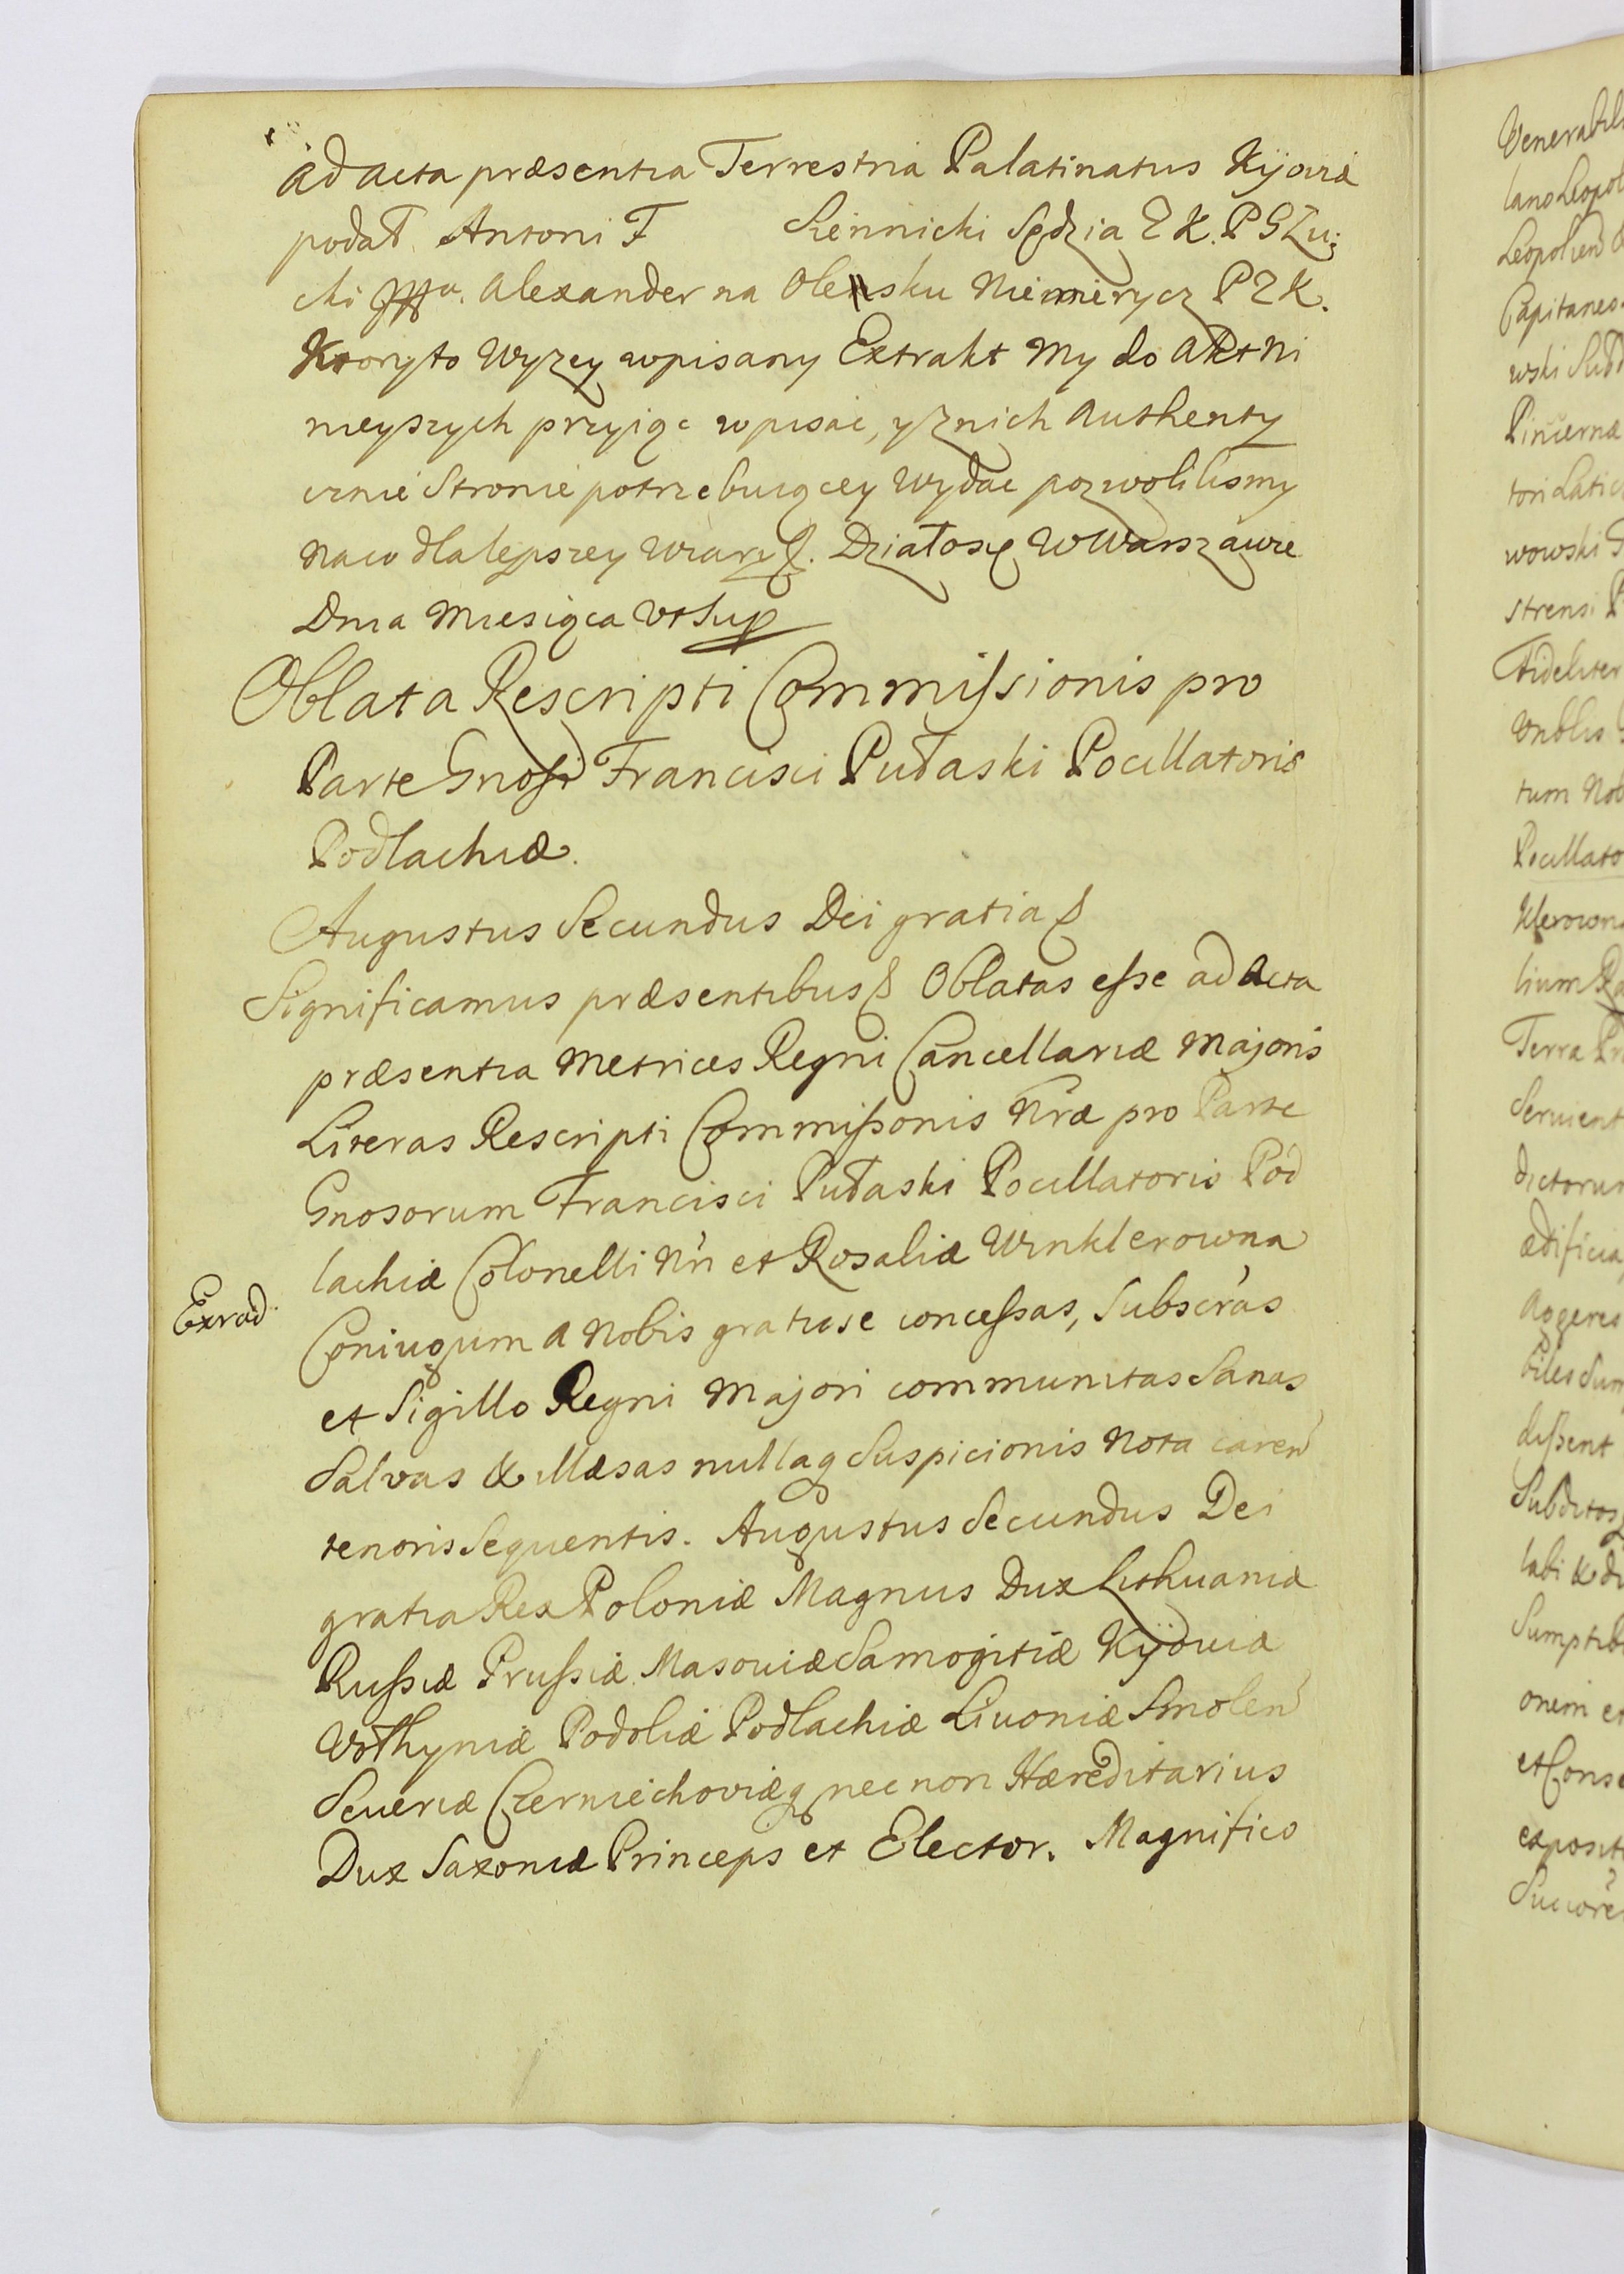 Ad Acta præsentia Terrestria Palatinatus Kijoviæ
podał Antoni F Siennicki Sędzia Z K. P G Łu:
cki Alexander na Olensku Niemierycz P Z K.
Ktory to Wyzey wpisany Extrakt My do Akt Ni
nieyszych przyiąc wpisac, y z nich Authenty
cznie Stronie potrzebuiącey Wydac pozwolilismy
Na co dla lepszey Wiary &. Działo się W Warszawie
Dnia Miesiąca Vt Sup
Oblata Rescripti Commissionis pro
Parte Gnosi Francisci Pułaski Pocillatoris
Podlachiæ.
Augustus Secundus Dei gratia &
Significamus præsentibus & Oblatas esse ad Acta
præsentia Metrices Regni Cancellariæ Majoris
Literas Rescripti Commissionis Nræ pro Parte
Gnosorum Francisci Pułaski Pocillatoris Pod
lachiæ Colonelli Nri et Rosaliæ Winklerowna
Exrad.
Coniugum a Nobis gratiose concessas, Subscras
et Sigillo Regni Majori communitas Sanas
Salvas & Illæsas nullaq Suspicionis Nota caren
tenoris Sequentis. Augustus Secundus Dei
gratia Rex Poloniæ Magnus Dux Lithuaniæ
Russiæ Prussiæ Masoviæ Samogitiæ Kijoviæ
Volhyniæ Podoliæ Podlachiæ Livoniæ Smolen
Severiæ Czerniechoviæq nec non Hæreditarius
Dux Saxoniæ Princeps et Elector. Magnifico